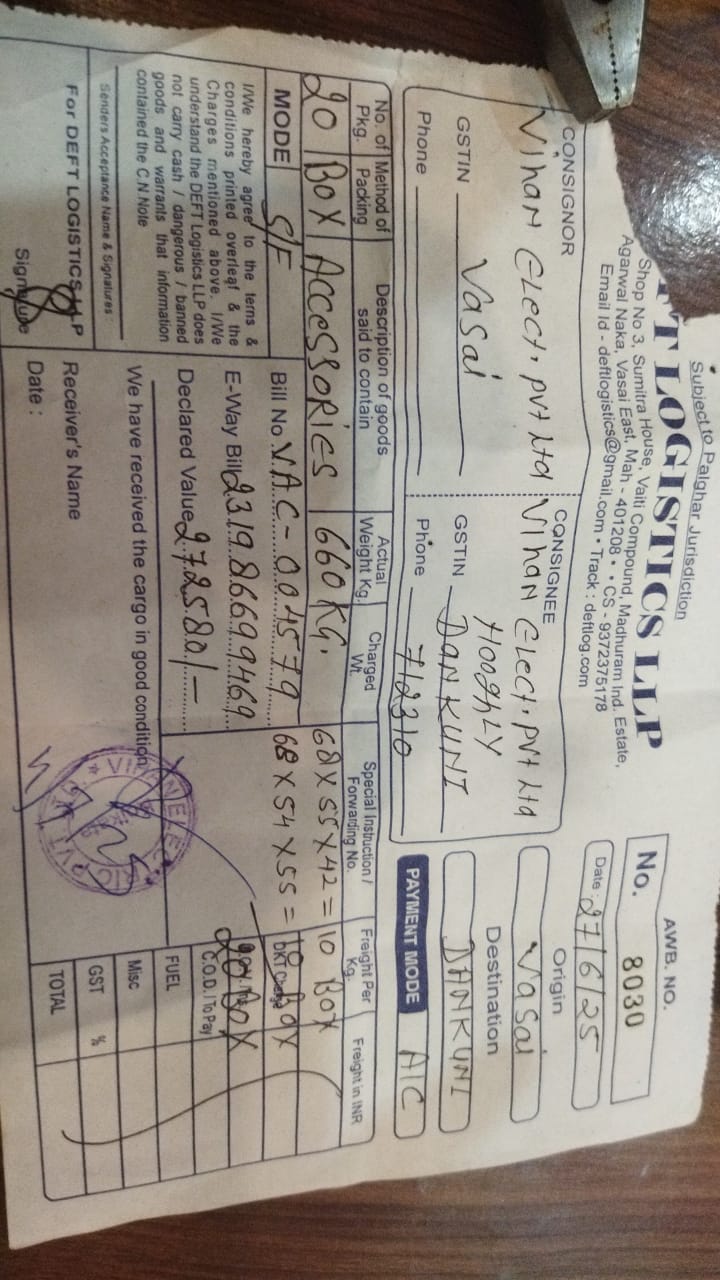 Subject to Palghar Jurisdiction
FT LOGISTICS LLP
Shop No 3, Sumitra House, Vaiti Compound, Madhuram Ind. Estate,
Agarwal Naka, Vasai East, Mah - 401208 • • CS - 9372375178
Email Id - deftlogistics@gmail.com • Track : deftlog.com
AWB. NO.
No. 8030
Date : 27/6/25
CONSIGNOR
Vihan Elect. Pvt Ltd
GSTIN
Vasai
Phone
CONSIGNEE
Vihan Elect. Pvt Ltd
HooghLY
GSTIN DANKUNI
Phone 712310
Origin
Vasai
Destination
DANKUNI
PAYMENT MODE A/C
No. of Pkg. Method of Packing Description of goods said to contain Actual Weight Kg. Charged Wt. Special Instruction / Forwarding No. Freight Per Kg. Freight in INR
20 Box Accessories 660 KG. 68 X 55 X 42 = 10 Box
MODE S/F Bill No. VAC-004579 68 X 54 X 55 = 10 Box
DKT Charge
E-Way Bill 231986699469 20 Box
Declared Value 272580/-
C.O.D. / To Pay
FUEL
Misc
GST %
TOTAL
I/We hereby agree to the terns &
conditions printed overleaf & the
Charges mentioned above. I/We
understand the DEFT Logistics LLP does
not carry cash / dangerous / banned
goods and warrants that information
contained the C.N Note
Senders Acceptance Name & Signatures :
For DEFT LOGISTICS LLP
Signature
We have received the cargo in good condition
Receiver's Name
Date :